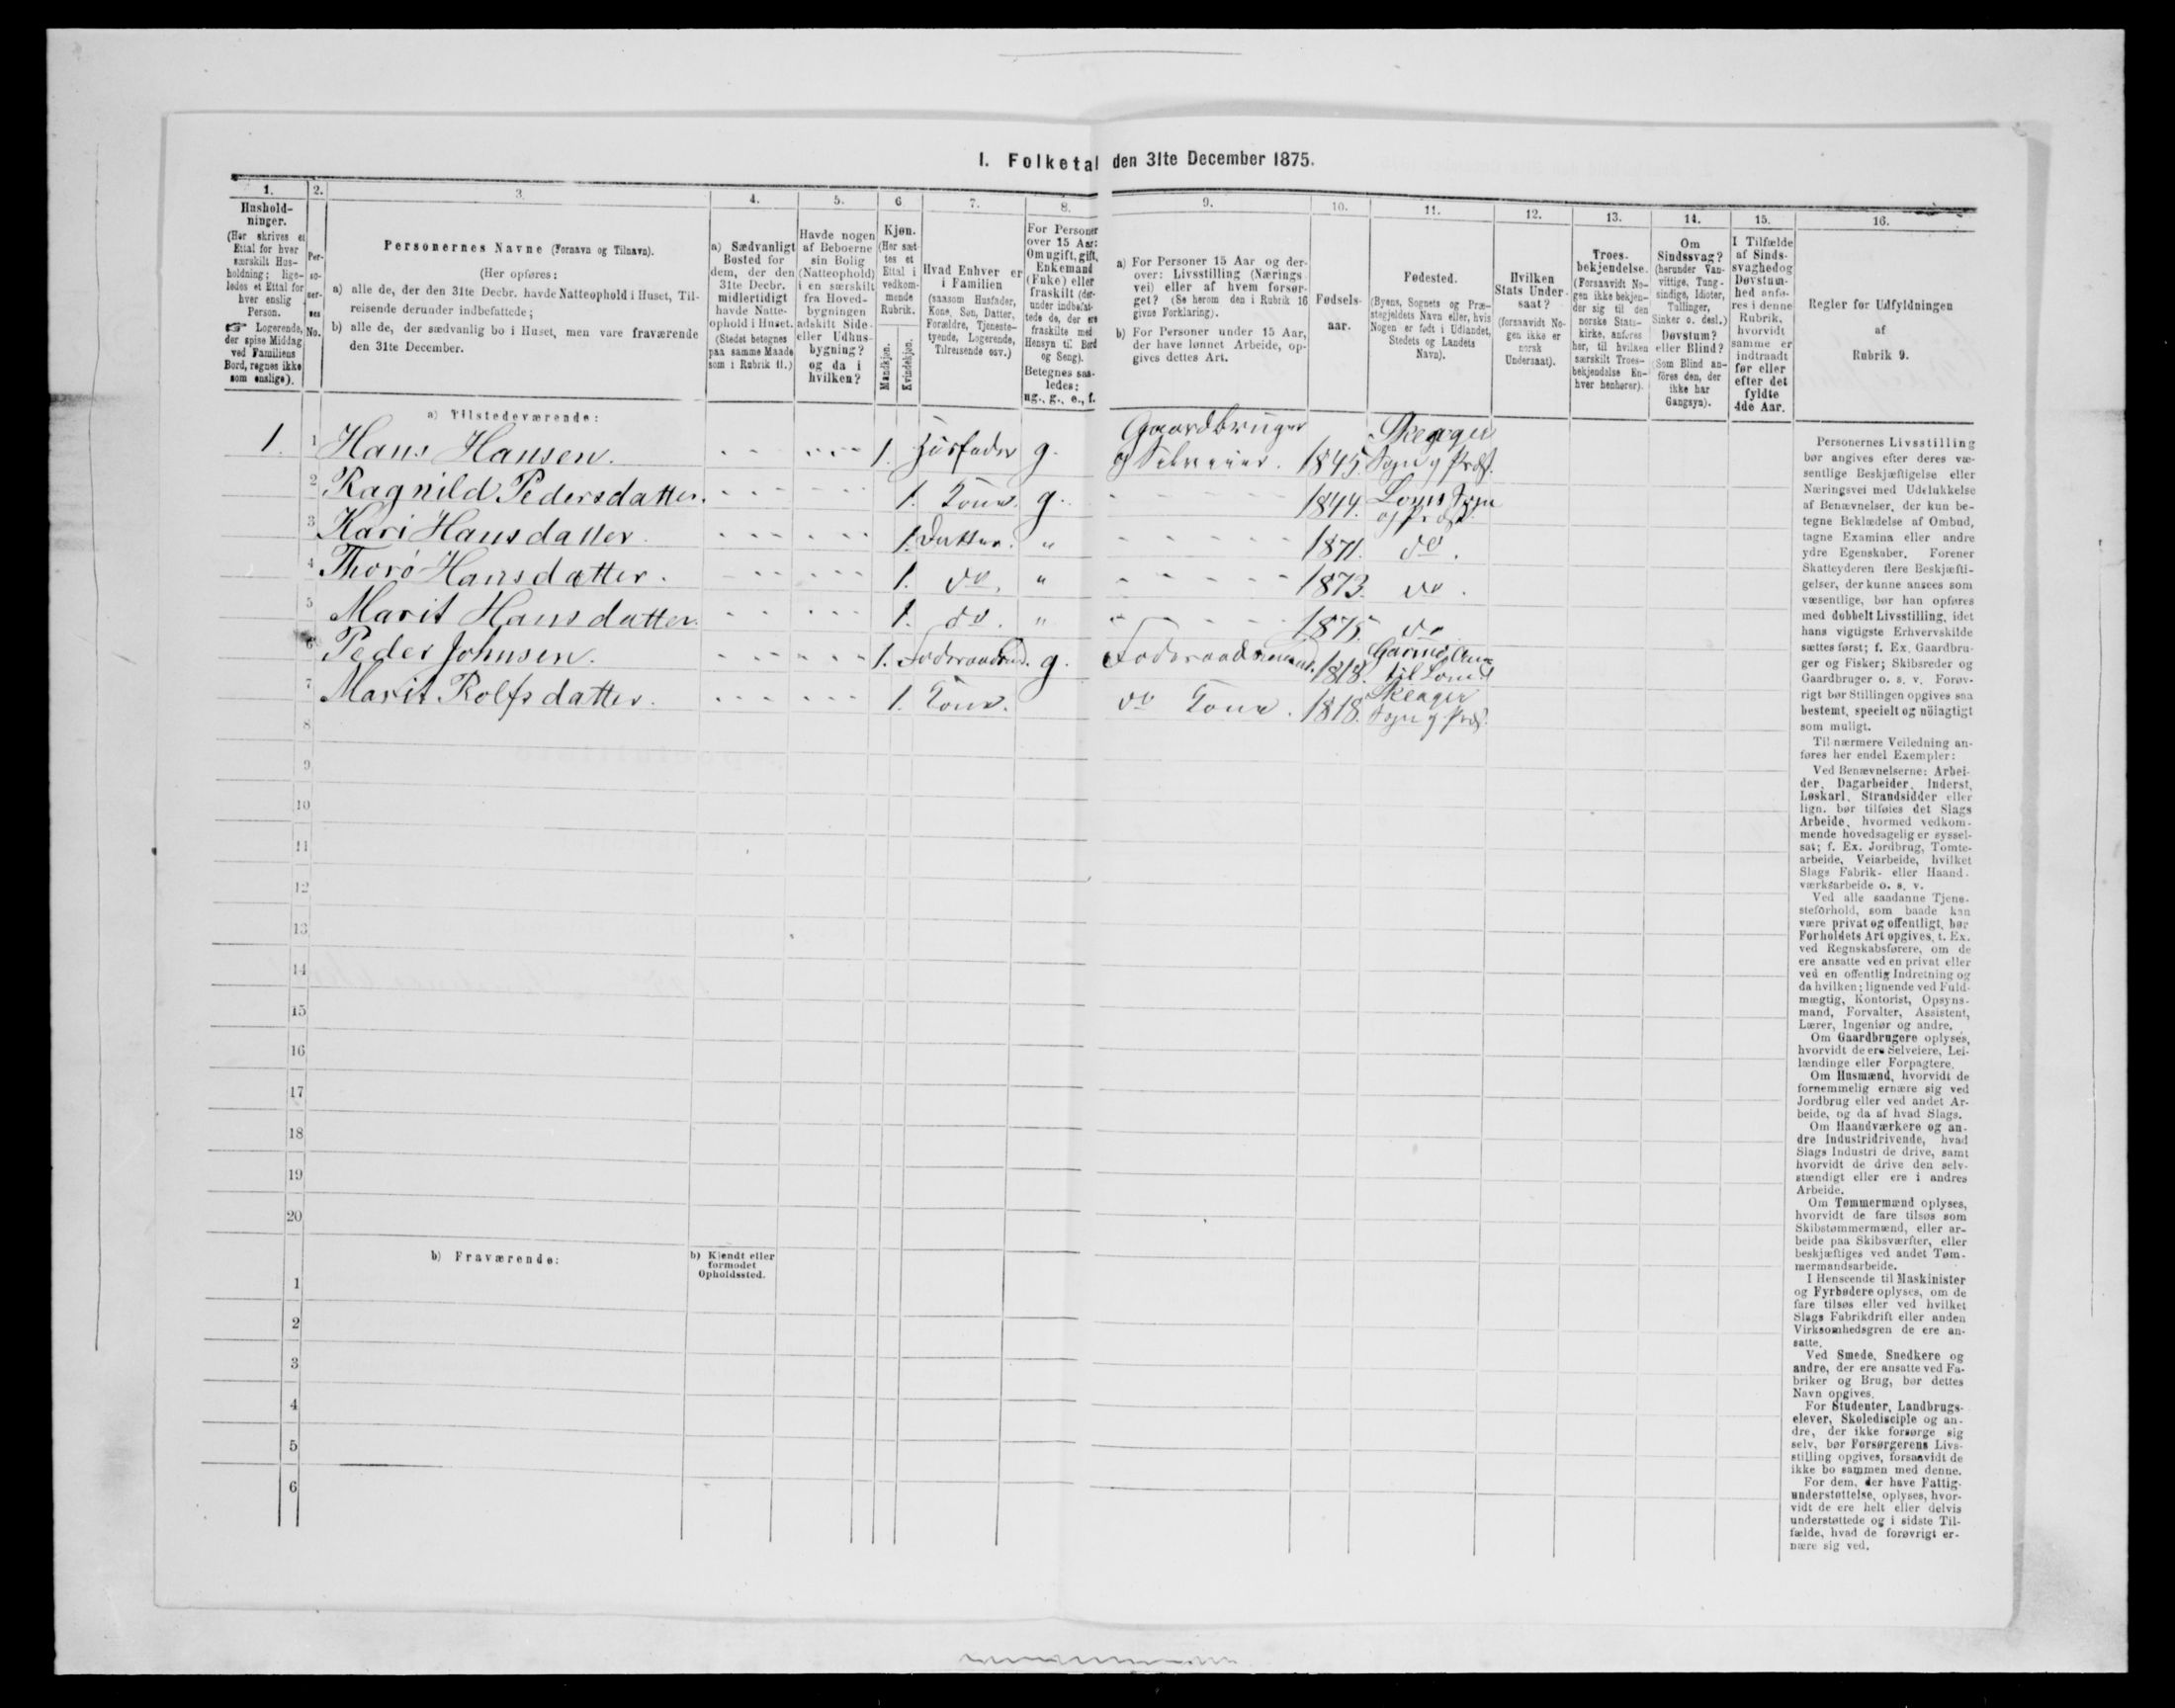 I. Folketal den 31te December 1875.
1. 2. 3. 4. 5. 6. 7. 8. 9. 10. 11. 12. 13. 14. 15. 16.
Hushold-
ninger.
(Her skrives et
Ettal for hver
særskilt Hus-
holdning; lige-
ledes et Ettal for
hver enslig
Person.
☞ Logerende,
der spise Middag
ved Familiens
Bord, regnes ikke
som enslige).
Per-
so-
ner-
nes
No.
Personernes Navne (Fornavn og Tilnavn).
(Her opføres:
a) alle de, der den 31te Decbr. havde Natteophold i Huset, Til-
reisende derunder indbefattede;
b) alle de, der sædvanlig bo i Huset, men vare fraværende
den 31te December.
a) Sædvanligt
Bosted for
dem, der den
31te Decbr.
midlertidigt
havde Natte-
ophold i Huset.
(Stedet betegnes
paa samme Maade
som i Rubrik 11.)
Havde nogen
af Beboerne
sin Bolig
(Natteophold)
i en særskilt
fra Hoved-
bygningen
adskilt Side-
eller Udhus-
bygning?
og da i
hvilken?
Kjøn.
(Her sæt
tes et
Ettal i
vedkom-
mende
Rubrik.
Mandkjøn.
Kvindekjøn.
Hvad Enhver er
i Familien
(saasom Husfader,
Kone, Søn, Datter,
Forældre, Tjeneste-
tyende, Logerende,
Tilreisende osv.)
For Personer
over 15 Aar:
Om ugift, gift,
Enkemand
(Enke) eller
fraskilt (der-
under indbefat-
tede de, der ere
fraskilte med
Hensyn til Bord
og Seng).
Betegnes saa-
ledes:
ug., g., e., f.
a) For Personer 15 Aar og der-
over: Livsstilling (Nærings
vei) eller af hvem forsør-
get? (Se herom den i Rubrik 16
givne Forklaring).
b) For Personer under 15 Aar,
der have lønnet Arbeide, op-
gives dettes Art.
Fødsels-
aar.
Fødested.
(Byens, Sognets og Præ-
stegjeldets Navn eller, hvis
Nogen er født i Udlandet,
Stedets og Landets
Navn).
Hvilken
Stats Under-
saat?
(forsaavidt No-
gen ikke er
norsk
Undersaat).
Troes-
bekjendelse.
(Forsaavidt No-
gen ikke bekjen-
der sig til den
norske Stats-
kirke, anføres
her, til hvilken
særskilt Troes-
bekjendelse En-
hver henhører).
Om
Sindssvag?
(herunder Van-
vittige, Tung-
sindige, Idioter,
Tullinger,
Sinker o. desl.)
Døvstum?
eller Blind?
(Som Blind an-
føres den, der
ikke har
Gangsyn).
I Tilfælde
af Sinds-
svaghed og
Døvstum-
hed anfø-
res i denne
Rubrik,
hvorvidt
samme er
indtraadt
før eller
efter det
fyldte
4de Aar.
Regler for Udfyldningen
af
Rubrik 9.
a) Tilstedeværende:
1. 1 Hans Hansen. 1. Husfader g. Gaardbruger og Selveier. 1845. Skeager Sogn og Præst.
2 Ragnild Pedersdatter. 1. Kone. g. 1844. Loms Sogn og Præst.
3 Kari Hansdatter. 1. Datter. " 1871. do.
4 Thorø Hansdatter. 1. do. " 1873. do.
5 Marit Hansdatter. 1. do. " 1875. do
6 Peder Johnsen. 1. g. 1818. til Lom
7 Marit Rolfsdatter. 1. Kone. do Kone. 1818. Skeager Sogn og Præst.
8
9
10
11
12
13
14
15
16
17
18
19
20
b) Fraværende:
b) Kjendt eller
formodet
Opholdssted.
1
2
3
4
5
6
Personernes Livsstilling
bør angives efter deres væ-
sentlige Beskjæftigelse eller
Næringsvei med Udelukkelse
af Benævnelser, der kun be-
tegne Beklædelse af Ombud,
tagne Examina eller andre
ydre Egenskaber. Forener
Skatteyderen flere Beskjæfti-
gelser, der kunne ansees som
væsentlige, bør han opføres
med dobbelt Livsstilling, idet
hans vigtigste Erhvervskilde
sættes først; f. Ex. Gaardbru-
ger og Fisker; Skibsreder og
Gaardbruger o. s. v. Forøv-
rigt bør Stillingen opgives saa
bestemt, specielt og nöiagtigt
som muligt.
Til nærmere Veiledning an-
føres her endel Exempler:
Ved Benævnelserne: Arbei-
der, Dagarbeider, Inderst,
Løskarl, Strandsidder eller
lign. bør tilføies det Slags
Arbeide, hvormed vedkom-
mende hovedsagelig er syssel-
sat; f. Ex. Jordbrug, Tomte-
arbeide, Veiarbeide, hvilket
Slags Fabrik- eller Haand-
værksarbeide o. s. v.
Ved alle saadanne Tjene-
steforhold, som baade kan
være privat og offentligt, bør
Forholdets Art opgives, t. Ex.
ved Regnskabsførere, om de
ere ansatte ved en privat eller
ved en offentlig Indretning og
da hvilken; lignende ved Fuld-
mægtig, Kontorist, Opsyns-
mand, Forvalter, Assistent,
Lærer, Ingeniør og andre.
Om Gaardbrugere oplyses,
hvorvidt de ere Selveiere, Lei-
lændinge eller Forpagtere.
Om Husmænd, hvorvidt de
fornemmelig ernære sig ved
Jordbrug eller ved andet Ar-
beide, og da af hvad Slags.
Om Haandværkere og an-
dre Industridrivende, hvad
Slags Industri de drive, samt
hvorvidt de drive den selv-
stændigt eller ere i andres
Arbeide.
Om Tømmermænd oplyses,
hvorvidt de fare tilsøs som
Skibstømmermænd, eller ar-
beide paa Skibsværfter, eller
beskjæftiges ved andet Tøm-
mermandsarbeide.
I Henseende til Maskinister
og Fyrbødere oplyses, om de
fare tilsøs eller ved hvilket
Slags Fabrikdrift eller anden
Virksomhedsgren de ere an-
satte.
Ved Smede, Snedkere og
andre, der ere ansatte ved Fa-
briker og Brug, bør dettes
Navn opgives.
For Studenter, Landbrugs-
elever, Skoledisciple og an-
dre, der ikke forsørge sig
selv, bør Forsørgerens Livs-
stilling opgives, forsaavidt de
ikke bo sammen med denne.
For dem, der have Fattig-
understøttelse, oplyses, hvor-
vidt de ere helt eller delvis
understøttede og i sidste Til-
fælde, hvad de forøvrigt er-
nære sig ved.